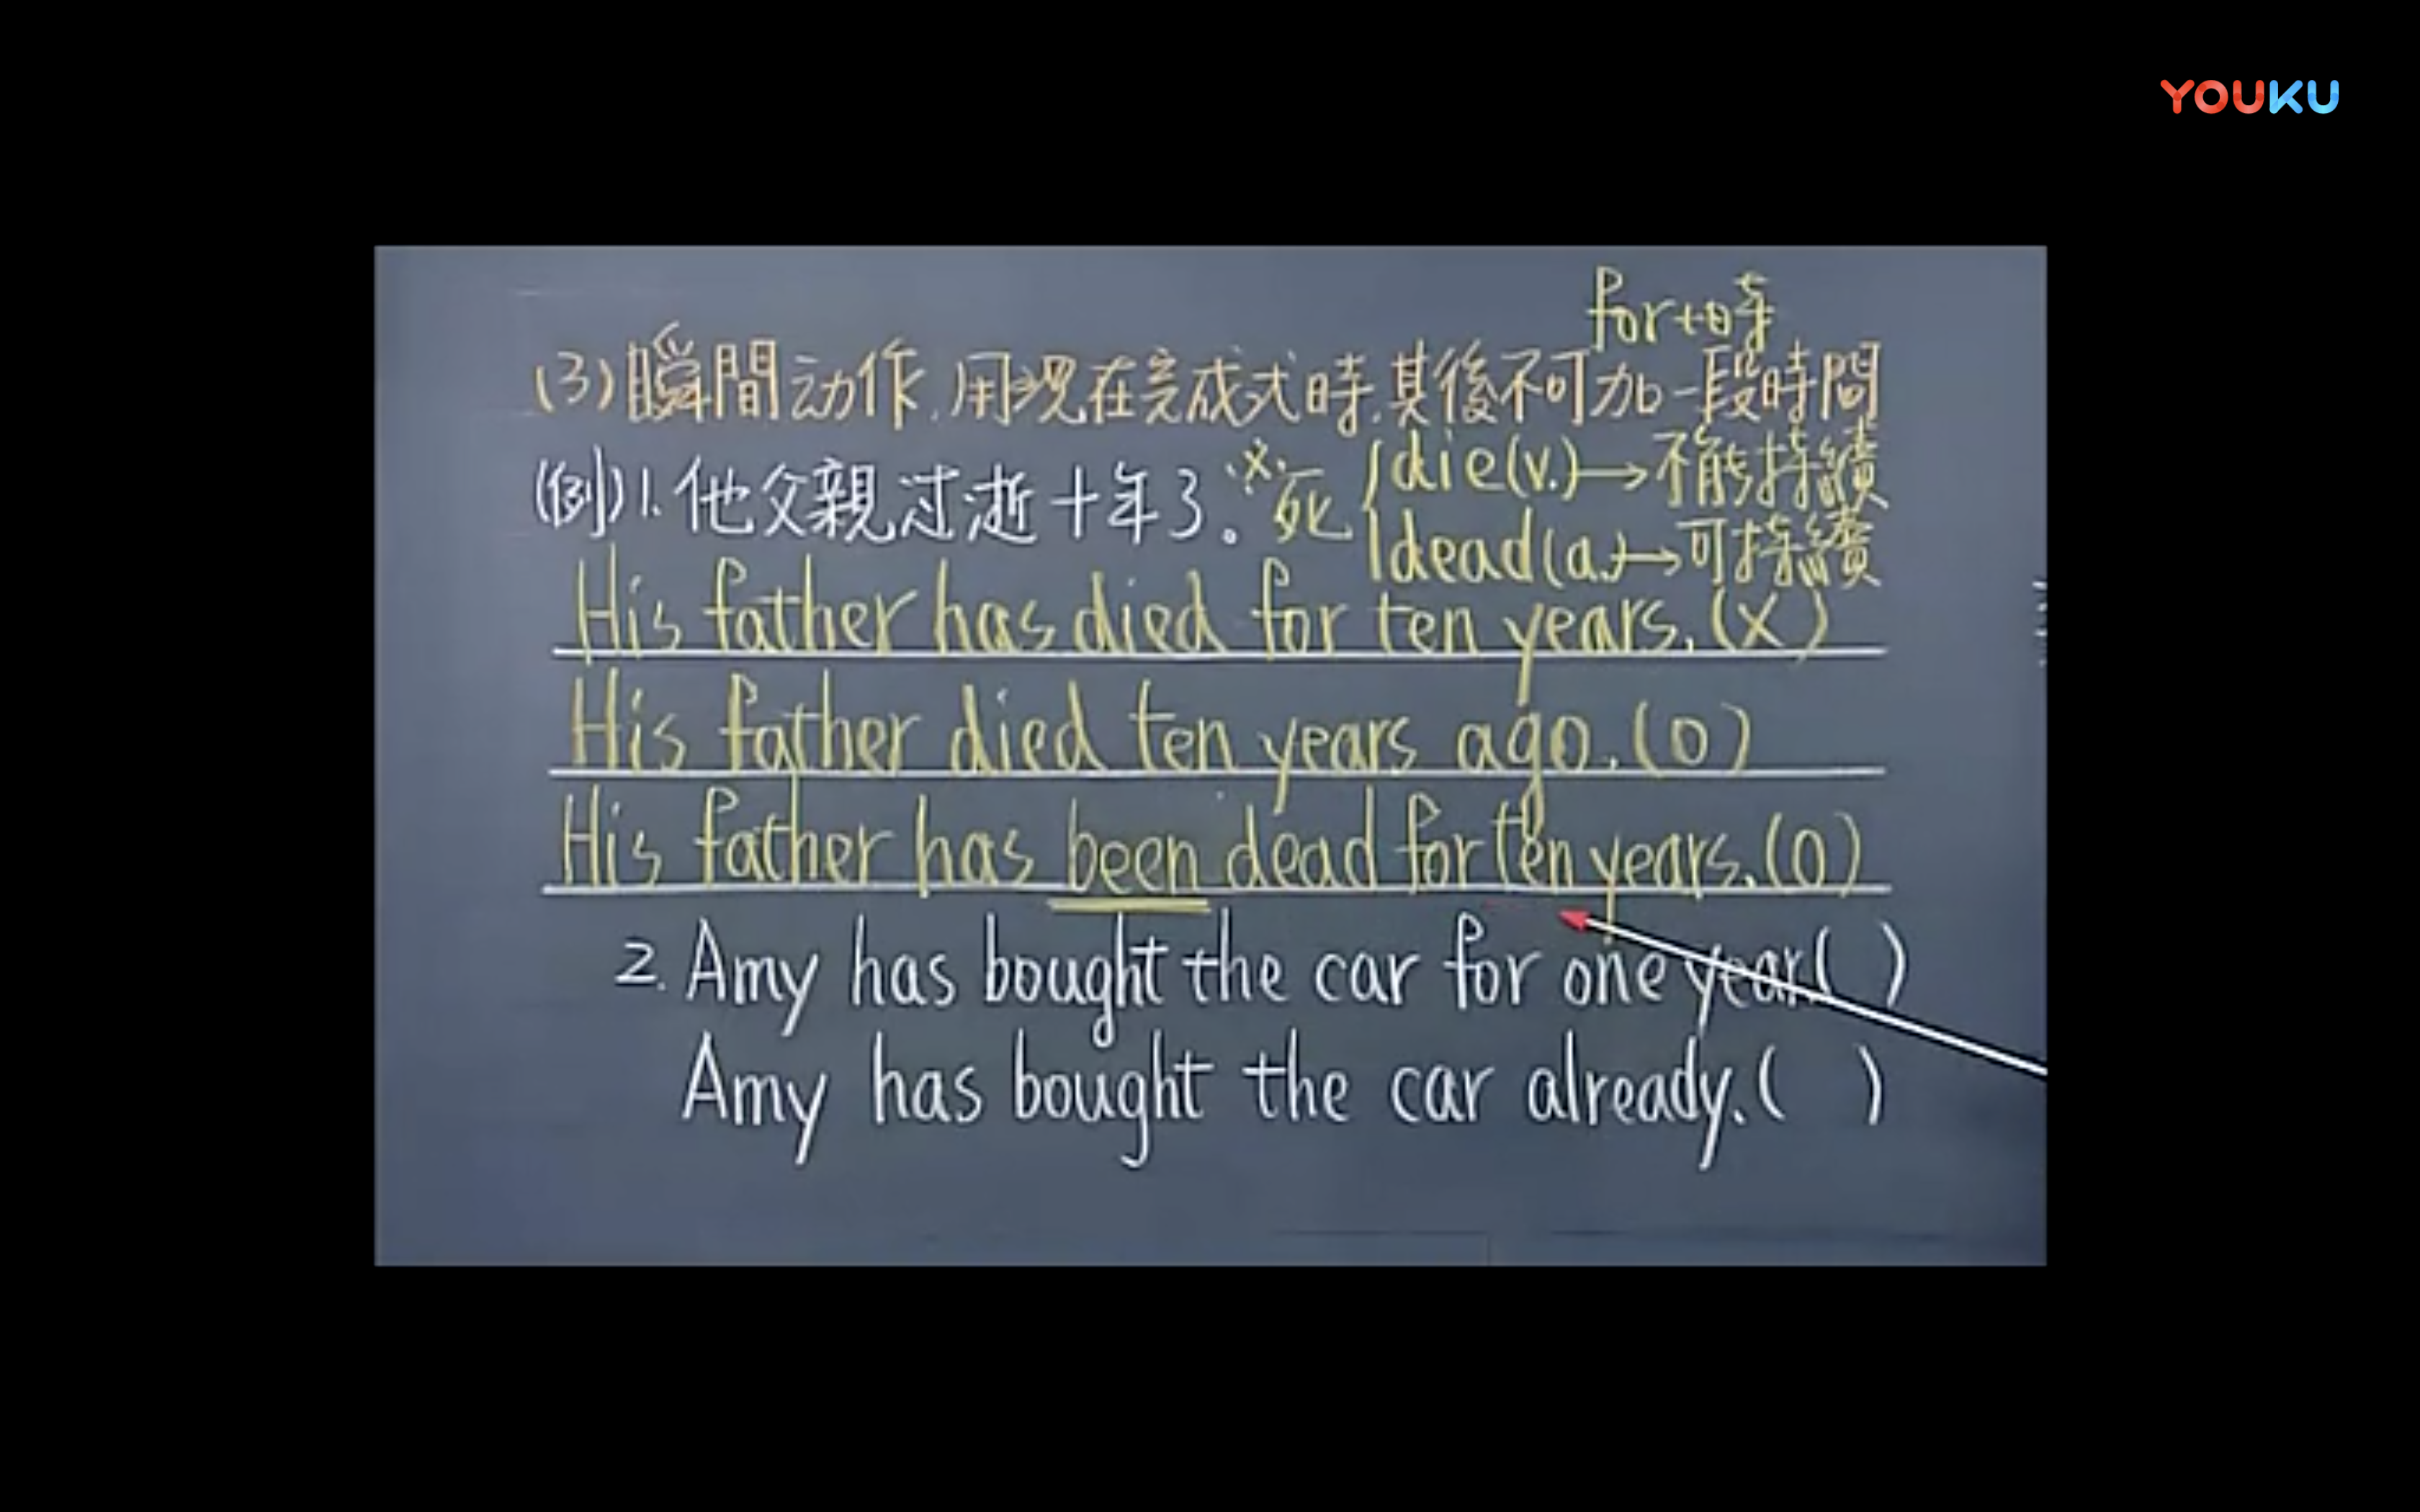 YOUKU
for+時
(3)瞬間动作,用现在完成式時,其後不可加一段時間
(例)1.他父親过逝十年了。※死 die(v.)→不能持續
dead(a.)→可持續
His father has died for ten years.(X)
His father died ten years ago.(O)
His father has been dead for ten years.(O)
2. Amy has bought the car for one year( )
Amy has bought the car already.( )